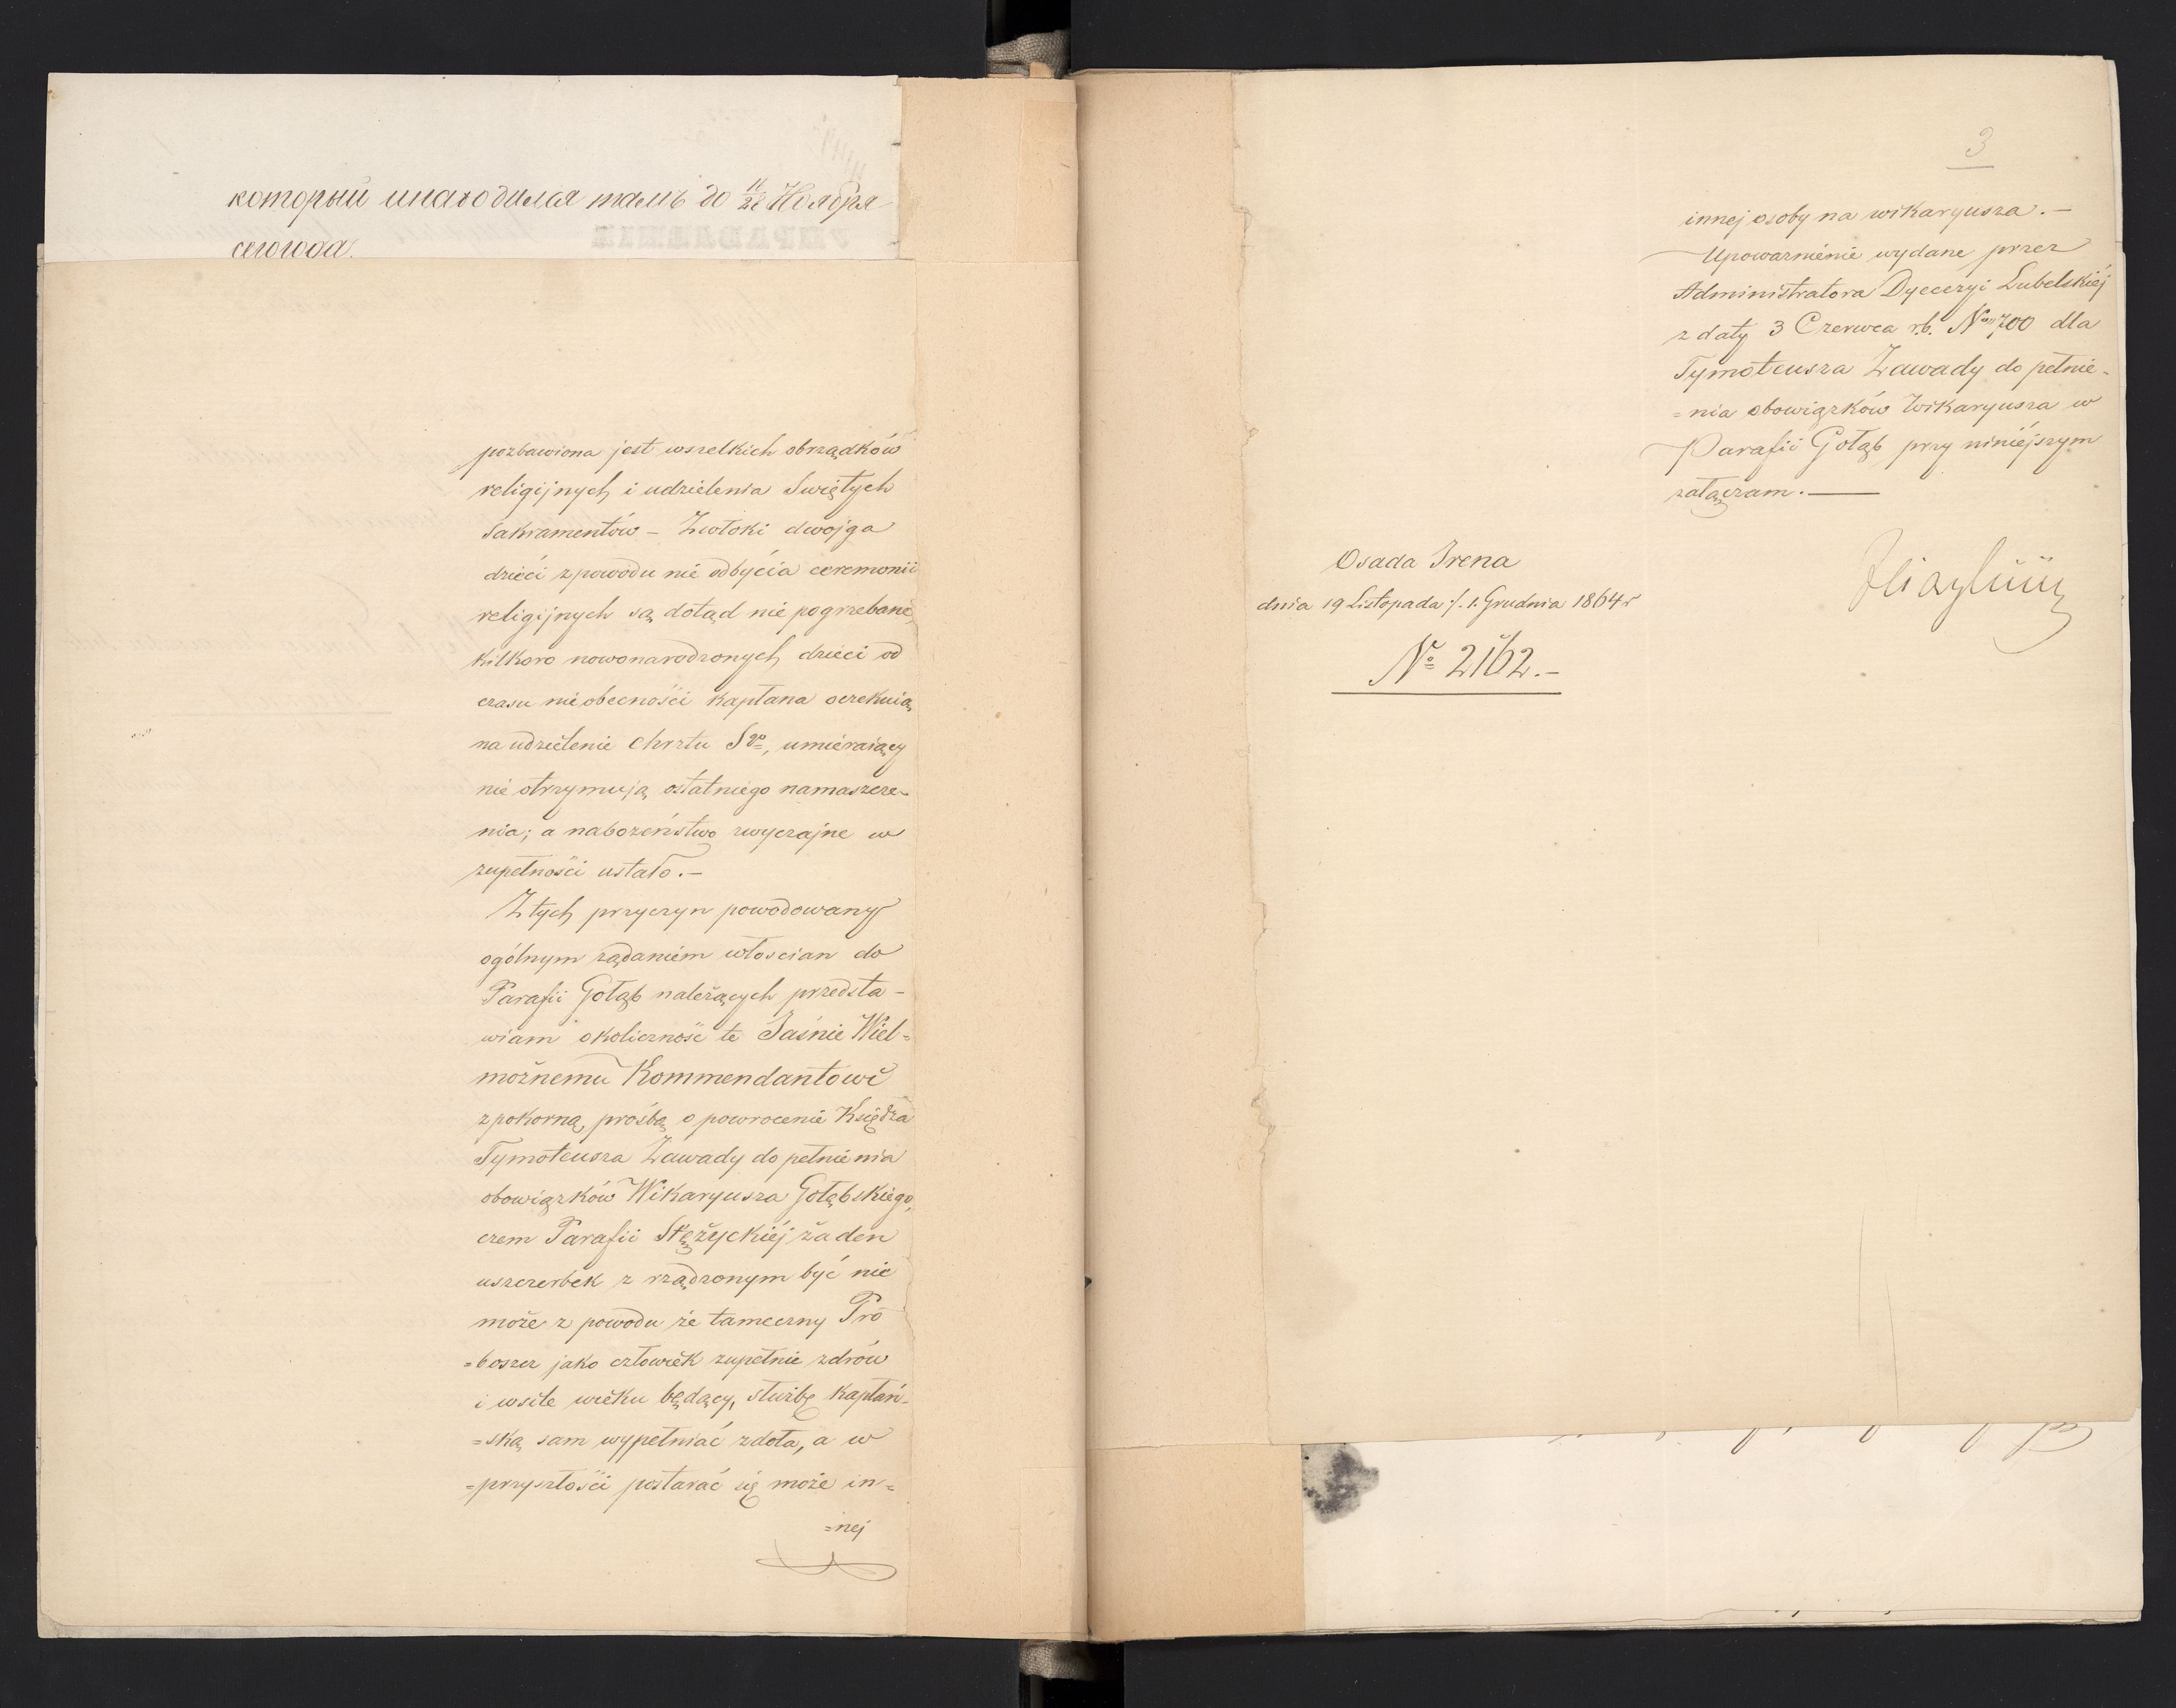 который инаходился тамъ до 16/28 Ноября
сегогода.
pozbawiona jest wszelkich obrządków
religijnych i udzielenia Swiętych
Sakramentów – Zwłoki dwojga
dzieci z powodu nie odbycia ceremonii
religijnych są dotąd nie pogrzebane,
kilkoro nowonarodzonych dzieci od
czasu nieobecności kapłana oczekuią
na udzielenie chrztu Sgo, umieraiący
nie otrzymują ostatniego namaszcze-
nia; a nabożeństwo zwyczajne w
zupełności ustało.–
Z tych przyczyn powodowany
ogólnym rządaniem włoscian do
Parafii Gołąb należących przedsta-
wiam okoliczność te Jaśnie Wiel=
możnemu Kommendantowi
z pokorną prośbą o powrocenie Księdza
Tymoteusza Zawady do pełnienia
obowiązków Wikaryusza Gołąbskiego,
czem Parafii Stężyckiéj żaden
uszczerbek zrządzonym być nie
może z powodu że tameczny Pro
=boszcz jako człowiek zupełnie zdrów
i wsile wieku będący, służbę kapłań-
=ską sam wypełniać zdoła, a w
=przyszłości postarać się może in=
=nej
3
innej osoby na wikaryusza.–
Upoważnienie wydane przez
Administratora Dyecezyi Lubelskiéj
z daty 3 Czerwca r.b. No 700 dla
Tymoteusza Zawady do pełnie-
=nia obowiązków Wikaryusza w
Parafii Gołąb przy niniéjszym
załączam.—
Osada Irena
dnia 19 Listopada /. 1. Grudnia 1864 r
No 2162.–